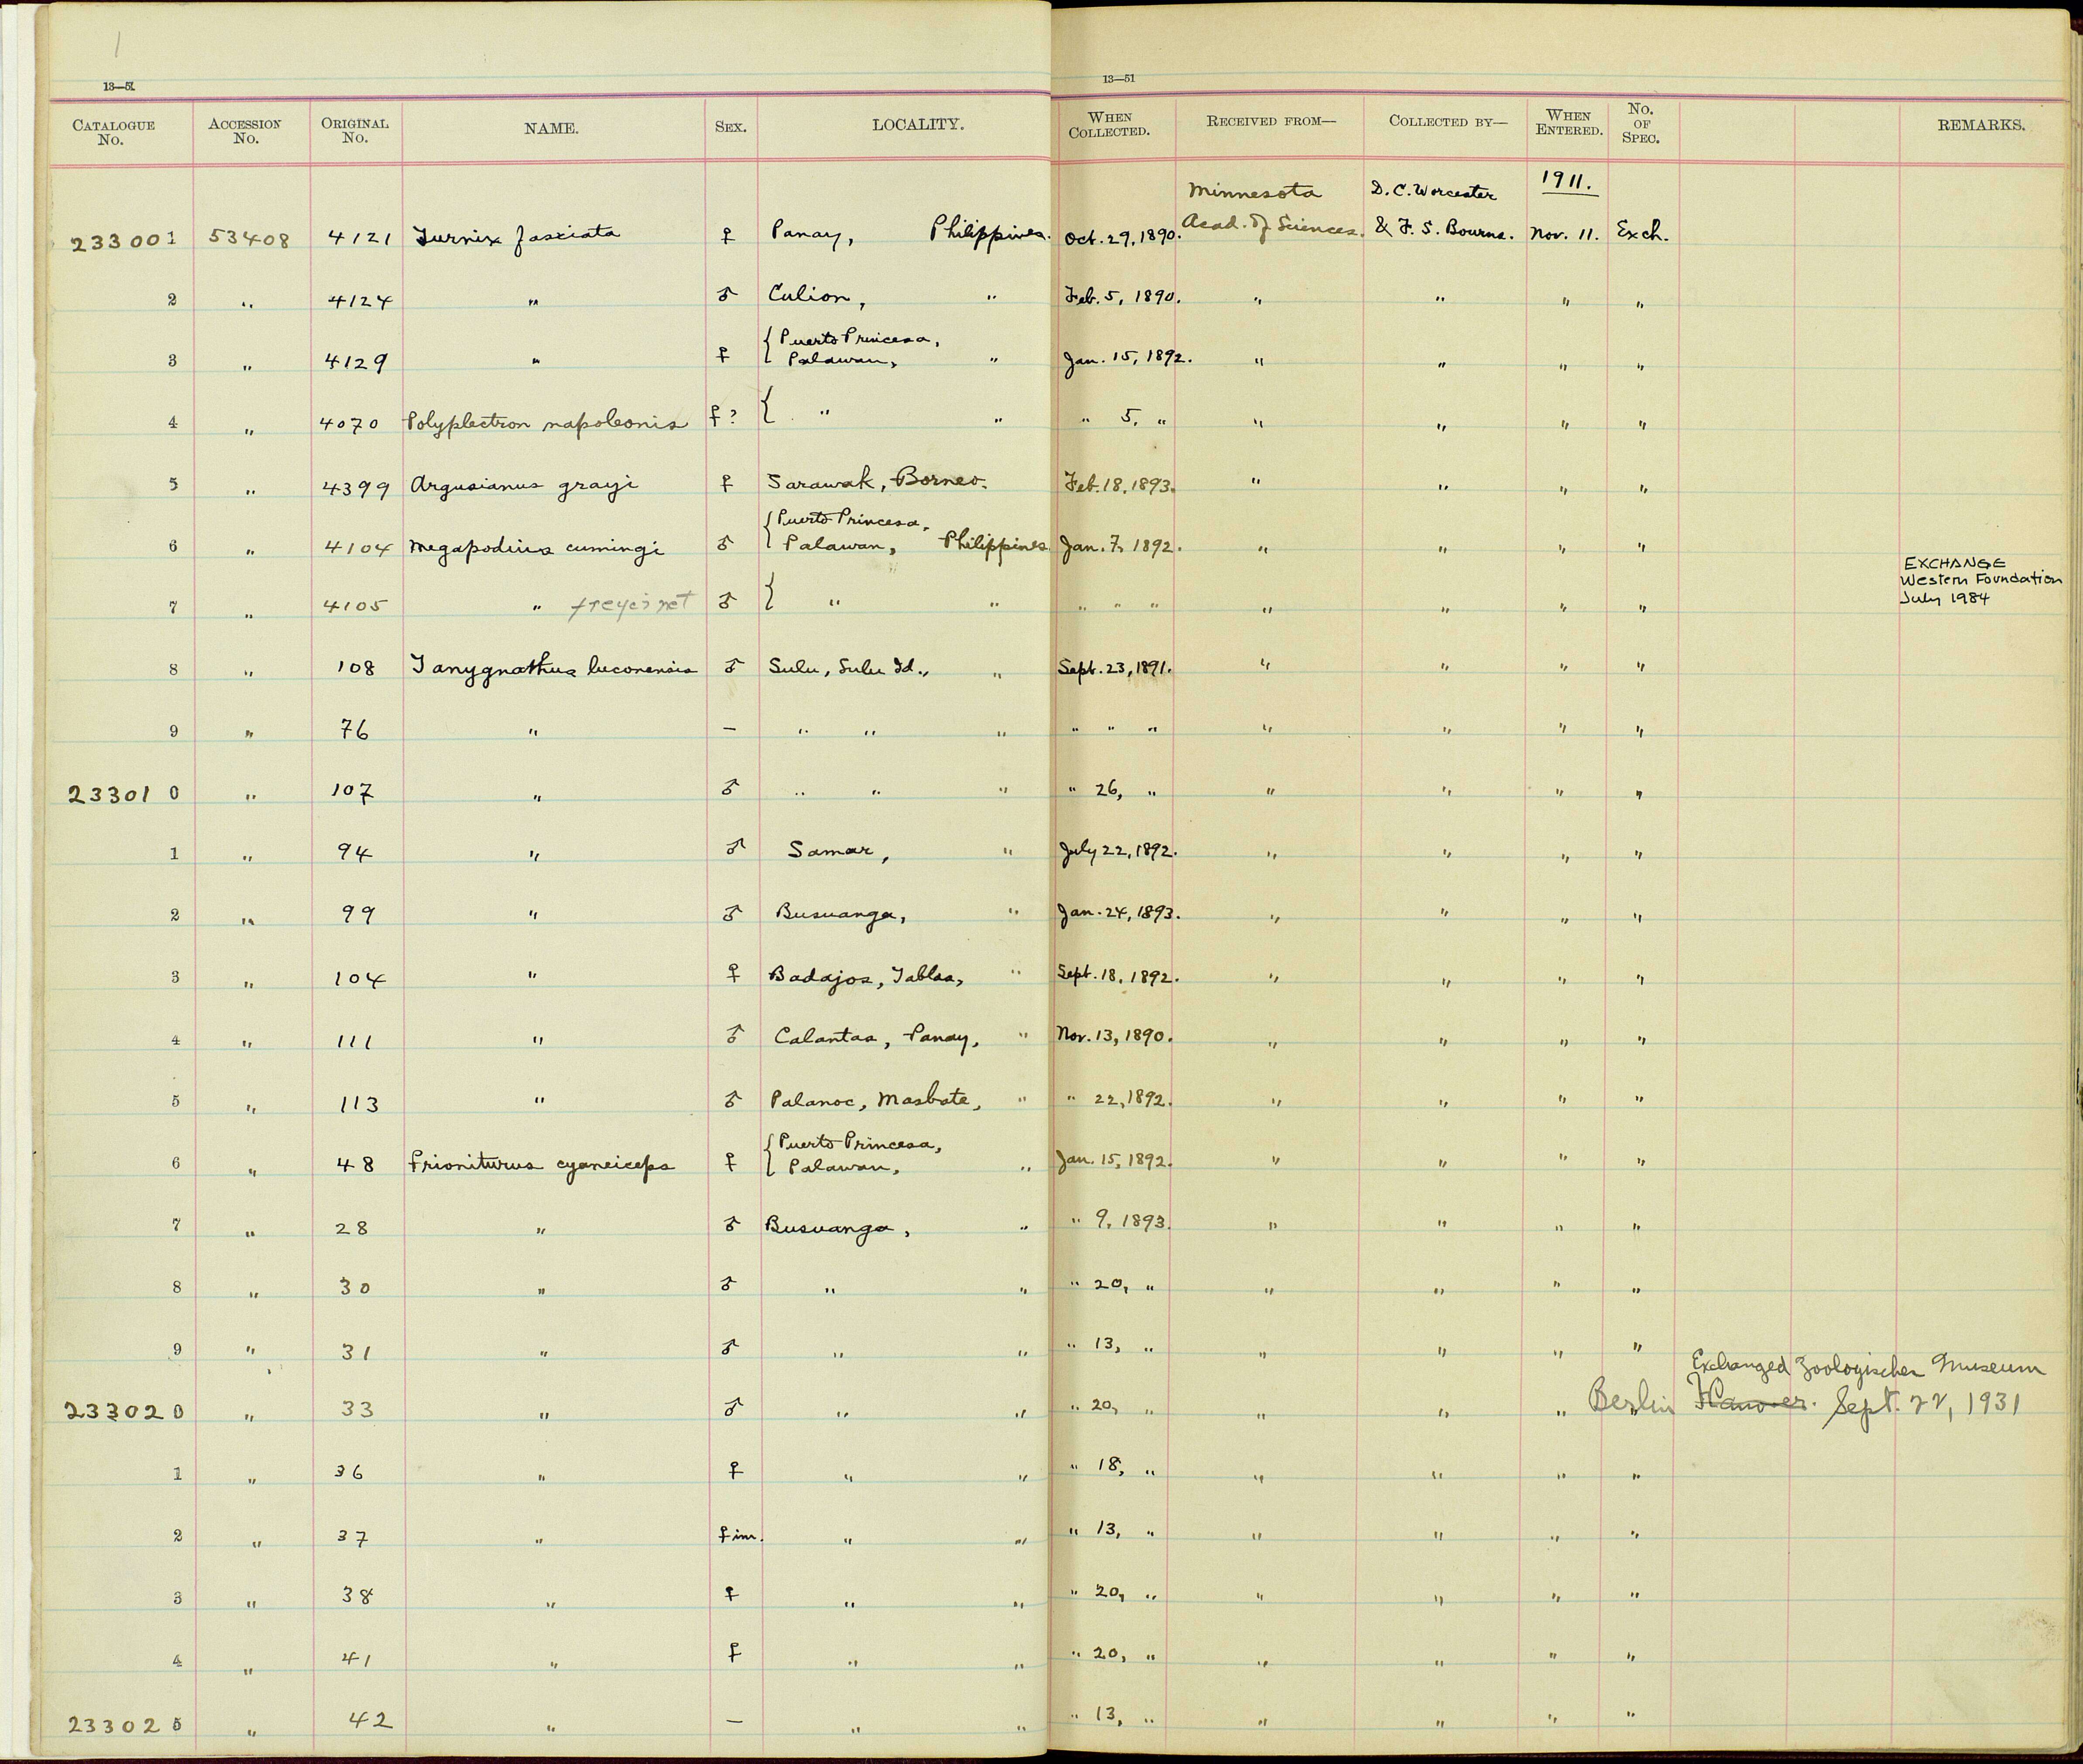 1
13—51 13—51
CATALOGUE No. ACCESSION No. ORIGINAL No. NAME. SEX. LOCALITY. WHEN COLLECTED. RECEIVED FROM— COLLECTED BY— WHEN ENTERED. No. OF SPEC. REMARKS.
Minnesota D. C. Worcester 1911.
233001 53408 4121 Turnix fasciata ♀ Panay, Philippines. Oct. 29, 1890. Acad. of Sciences. & F. S. Bourns. Nov. 11. Exch.
2 " 4124 " ♂ Culion, " Feb. 5, 1890. " " " "
3 " 4129 " ♀ { Puerto Princesa, Palawan, " Jan. 15, 1892. " " " "
4 " 4070 Polyplectron napoleonis ♀? { " " " 5, " " " " "
5 " 4399 Argusianus grayi ♀ Sarawak, Borneo. Feb. 18, 1893. " " " "
6 " 4104 Megapodius cumingi ♂ { Puerto Princesa, Palawan, Philippines Jan. 7, 1892. " " " "
7 " 4105 " freycinet ♂ { " " " " " " " " " EXCHANGE Western Foundation July 1984
8 " 108 Tanygnathus luconensis ♂ Sulu, Sulu Id., " Sept. 23, 1891. " " " "
9 " 76 " — " " " " " " " " " "
233010 " 107 " ♂ " " " " 26, " " " " "
1 " 94 " ♂ Samar, " July 22, 1892. " " " "
2 " 99 " ♂ Busuanga, " Jan. 24, 1893. " " " "
3 " 104 " ♀ Badajos, Tablas, " Sept. 18, 1892. " " " "
4 " 111 " ♂ Calantas, Panay, " Nov. 13, 1890. " " " "
5 " 113 " ♂ Palanoc, Masbate, " " 22, 1892. " " " "
6 " 48 Prioniturus cyaneiceps ♀ { Puerto Princesa, Palawan, " Jan. 15, 1892. " " " "
7 " 28 " ♂ Busuanga, " " 9, 1893. " " " "
8 " 30 " ♂ " " " 20, " " " " "
9 " 31 " ♂ " " " 13, " " " " "
Exchanged Zoologischer Museum
233020 " 33 " ♂ " " " 20, " " " " " Berlin Hanover. Sept. 22, 1931
1 " 36 " ♀ " " " 18, " " " " "
2 " 37 " ♀ im. " " " 13, " " " " "
3 " 38 " ♀ " " " 20, " " " " "
4 " 41 " ♀ " " " 20, " " " " "
233025 " 42 " — " " " 13, " " " " "